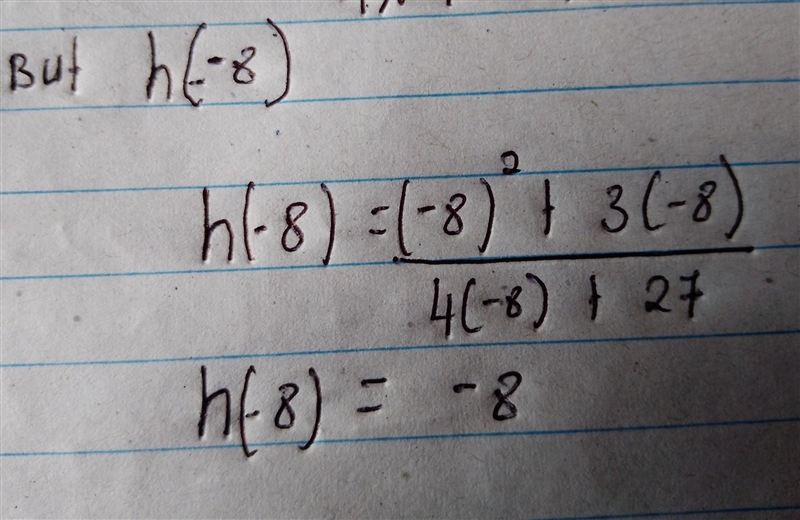 But h(-8)
h(-8) = (-8)² + 3(-8)
4(-8) + 27
h(-8) = -8